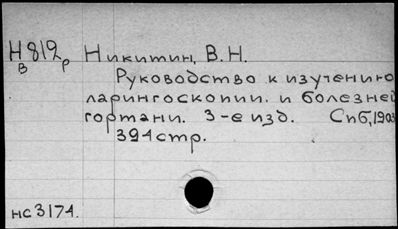 Н812р Никитин, В.Н.
В
Руководство к изучению
ларингоскопии. и болезней
гортани. 3-е изд. Спб, 1903
394 стр.
нс3174.